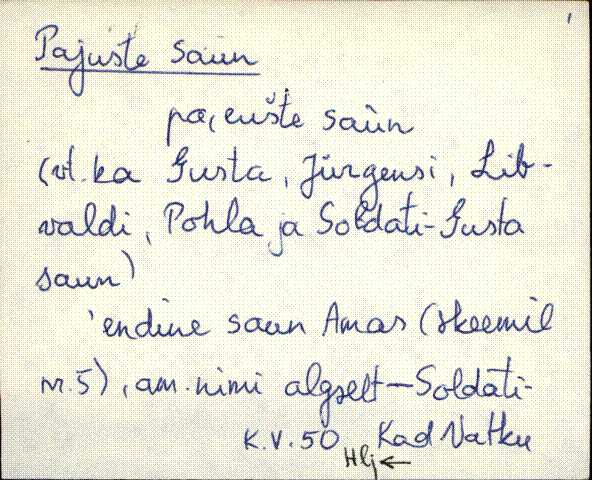 Pajuste saun
pa, eušte saùn
(vt. ka Gusta, Jürgensi, Lib-
valdi, Pohla ja Soldati-Gusta
saun)
'endine saun Amas (skeemil
nr. 5), am. nimi algselt — Soldati-
K.V. 50 Kad Natku
Hlj ←